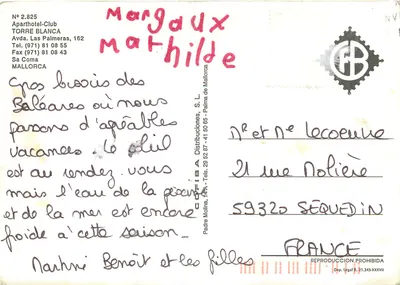 Nº 2.825
Aparthotel-Club
TORRE BLANCA
Avda. Las Palmeras, 162
Tel. (971) 81 08 55
Fax (971) 81 08 43
Sa Coma
MALLORCA
Margaux
Mathilde
Gros bisous des
Baléares où nous
passons d'agréables
vacances. Le soleil
est au rendez-vous
mais l'eau de la piscine
et de la mer est encore
froide à cette saison.
Martine Benoît et les filles
Distribuciones, S.L.
Padre Molina, Tels. 29 92 87 - 41 80 65 - Palma de Mallorca
Mr et Me Lecoenne
21 rue Molière
59320 SEQUEDIN
FRANCE
REPRODUCCION PROHIBIDA